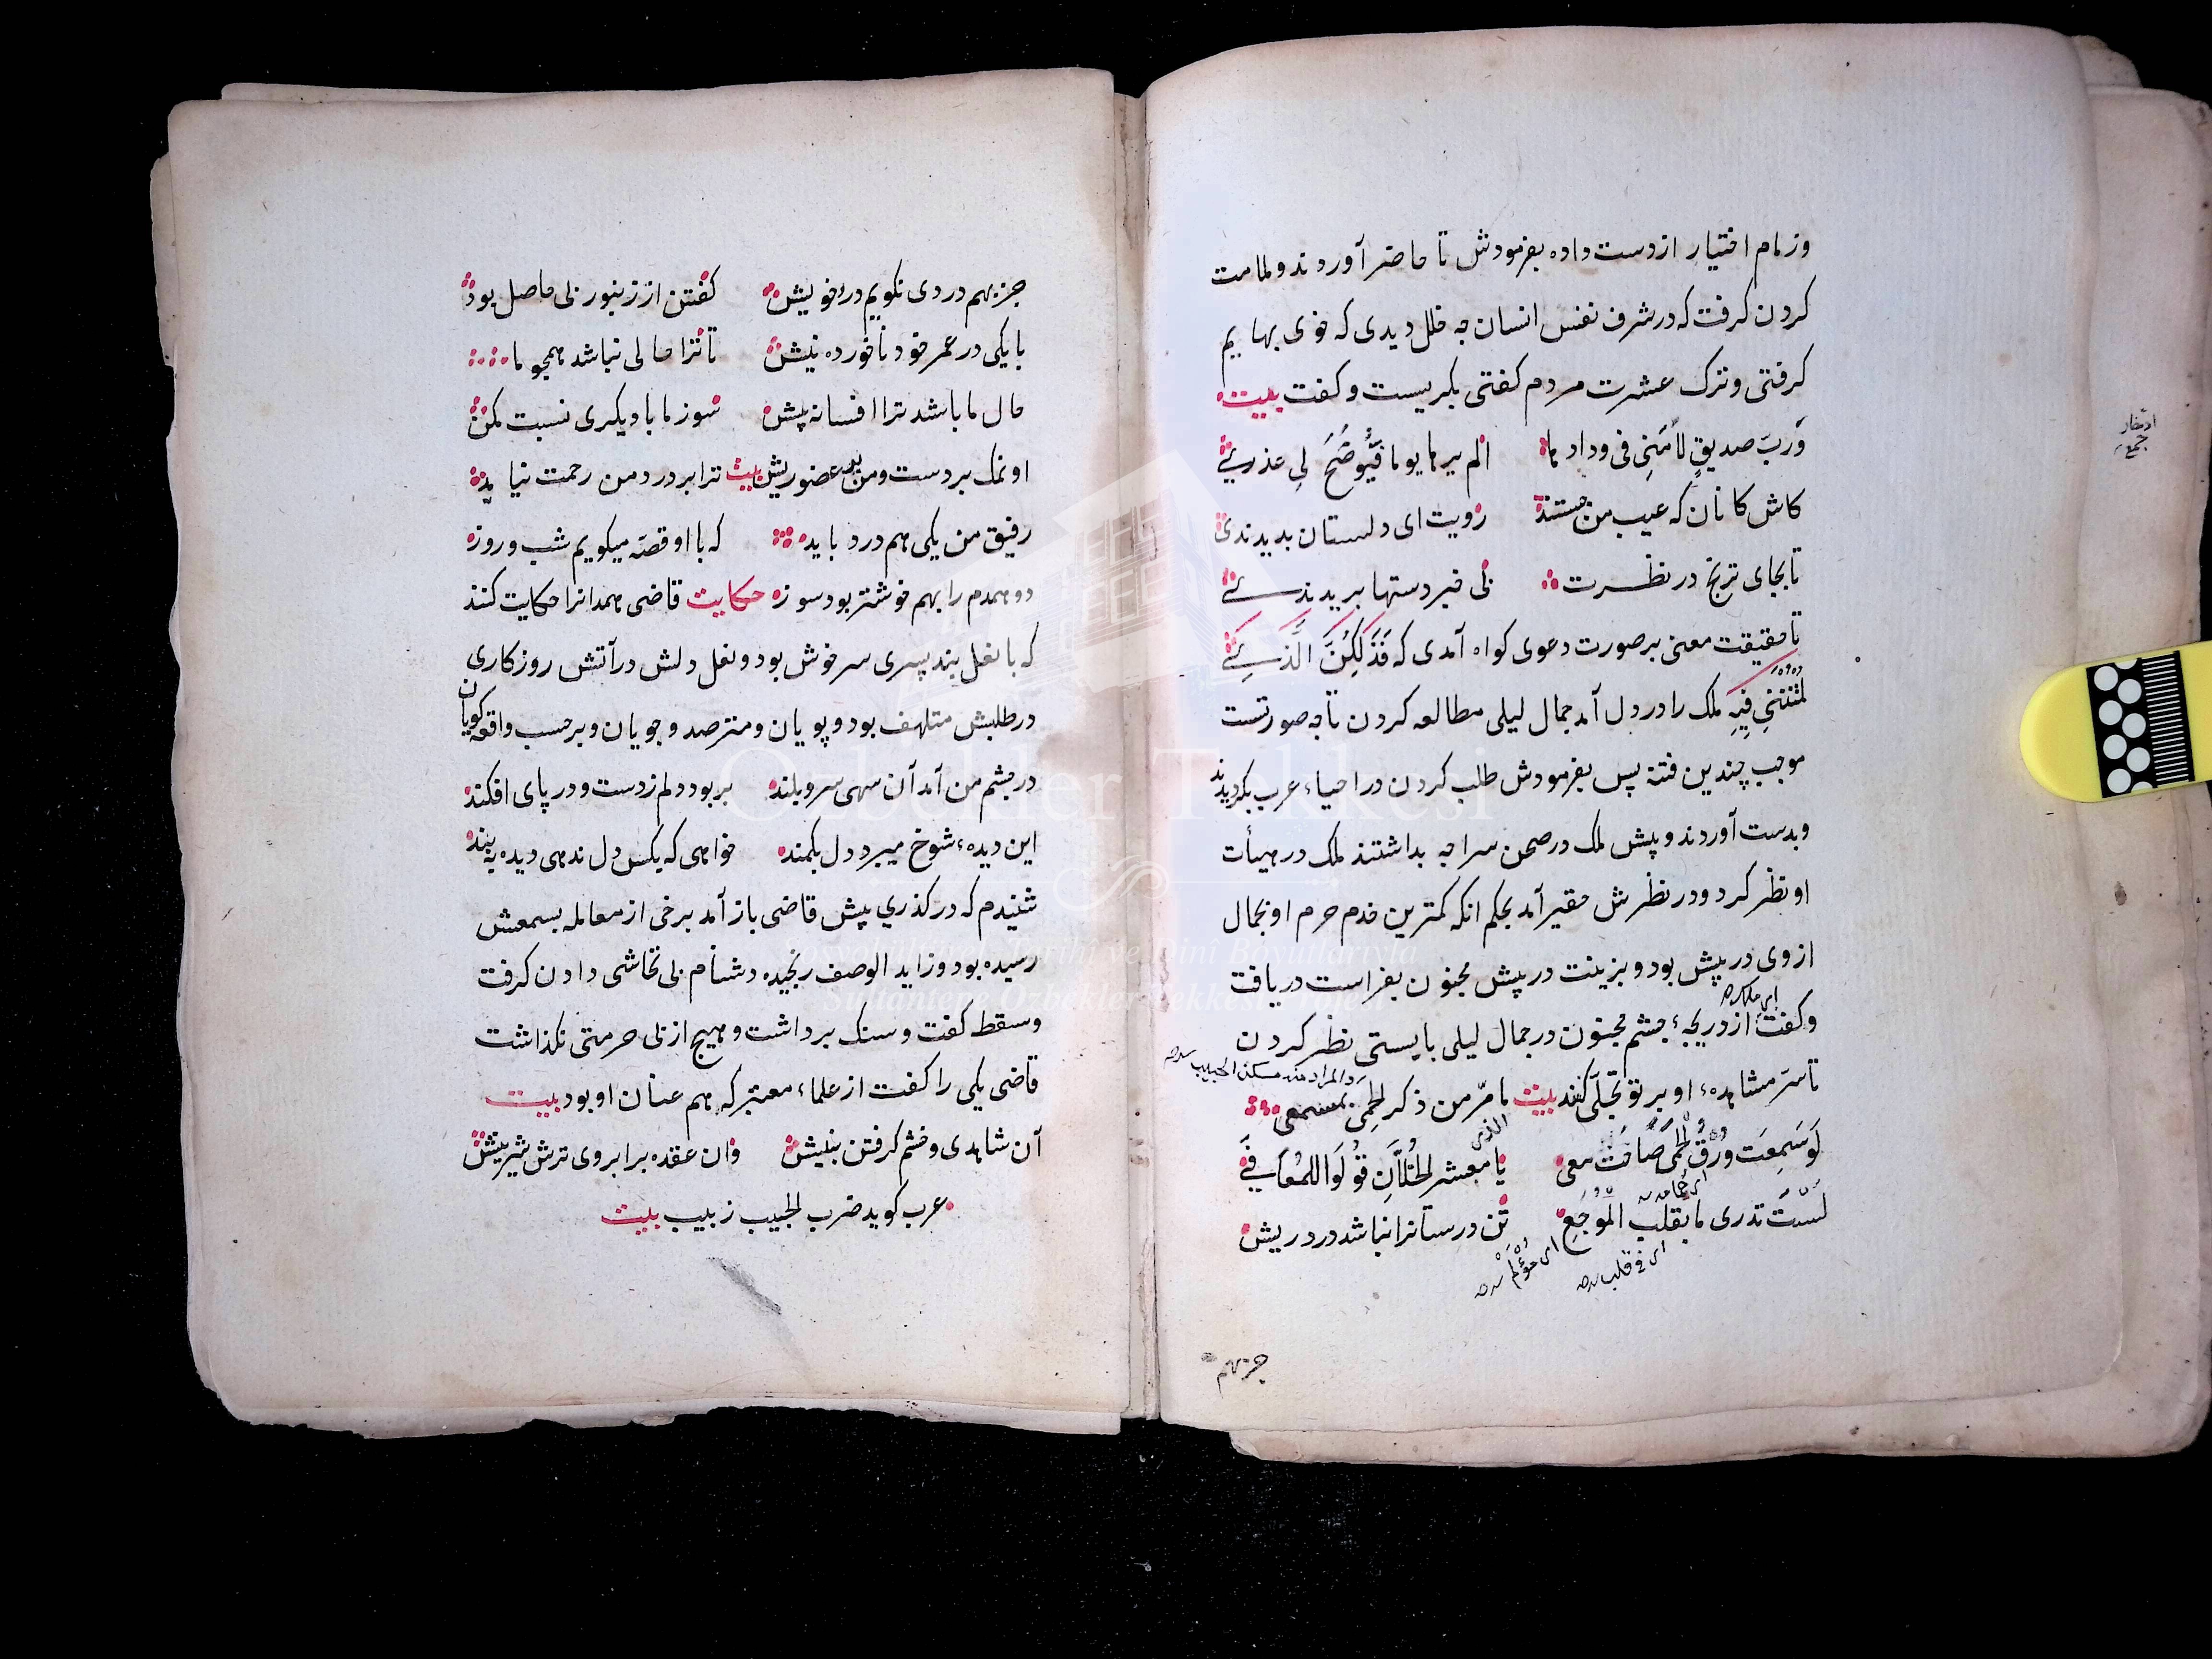 وزمام اختیار ازدست داده بفرمودش تا حاضر آوردند وملامت
کردن کرفت که درشرف نفس انسان چه خلل دیدی که خوی بهایم
کرفتی وترک عشرت مردم کفتی بکریست وکفت بیت
وَربّ صدیقٍ لاَمَنِی فی ودادها الم یرها یوما فَیُوضَحَ لِی عذری
کاش کانان که عیب من جستند رویت ای دلستان بدیدندی
تابجای ترنج در نظرت بی خبر دستها بریدندی
تا حقیقت معنی برصورت دعوی کواه آمدی که فَذَلِکُنَّ الَّذِی
لُمْتُنَّنِی فِیهِ ملک را در دل آمد جمال لیلی مطالعه کردن تا چه صورتست
موجب چندین فتنه پس بفرمودش طلب کردن در احیاء عرب بکردیدند
وبدست آوردند وپیش ملک درصحن سراچه بداشتند ملک در هیأت
او نظر کرد ودر نظرش حقیر آمد بحکم انکه کمترین خدم حرم او بجمال
ازوی در پیش بود وبزینت در پیش مجنون بفراست دریافت
وکفت از دریچهٔ چشم مجنون در جمال لیلی بایستی نظر کردن
تا سرّ مشاهدهٔ او بر تو تجلّی کند بیت ما مرّ من ذکر الحِمی بمسمعی
لَو سَمِعَت وُرْقُ الحِمَی صَاحَتْ معی یا معشر الخُلَّانِ قُولُوا للمُعَافی
لَسْتَ تدری ما بقلب المُوجَعِ تن درستانرا نباشد درد ریش
ای فی قلب
جز بهم
ادخار
جمع
جز بهم دردی نکویم درد خویش کفتن از زنبور بی حاصل بود
با یکی در عمر خود ناخورده نیش تا ترا حالی نباشد همچو ما
حال ما باشد ترا افسانه پیش سوز ما با دیکری نسبت مکن
او نمک بردست ومن بر عضو ریش بیت ترا بر درد من رحمت نیاید
رفیق من یکی هم درد باید که با او قصّه میکویم شب وروز
دو همدم را بهم خوشتر بود سوز حکایت قاضی همدانرا حکایت کنند
که با نعل بند پسری سرخوش بود ونعل دلش در آتش روزکاری
درطلبش متلهف بود وپویان ومترصد وجویان وبرحسب واقعه کویان
در چشم من آمد آن سهی سرو بلند بربود دلم زدست ودر پای افکند
این دیدهٔ شوخ میبرد دل بکمند خواهی که بکس دل ندهی دیده ببند
شنیدم که در کذری پیش قاضی باز آمد برخی از معامله بسمعش
رسیده بود وزاید الوصف رنجیده دشنام بی تحاشی دادن کرفت
وسقط کفت وسنک برداشت وهیچ از بی حرمتی نکذاشت
قاضی یکی را کفت از علماء معتبر که هم عنان او بود بیت
آن شاهدی وخشم کرفتن بنیش وان عقده بر ابروی ترش شیرینش
عرب کوید ضرب الحبیب زبیب بیت